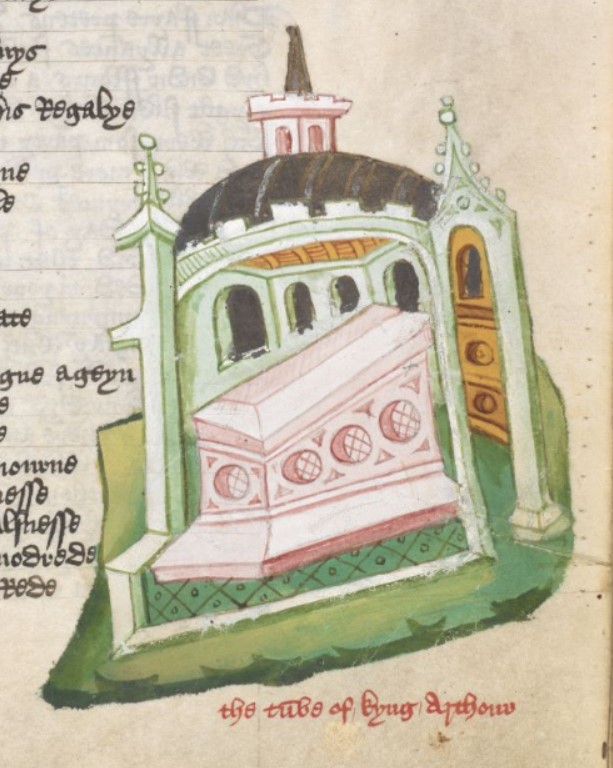 nys
e
ns Regalye
ne
de
ate
gne ageyn
e
e
mowne
nesse
alsnesse
modrede
Rede
the tube of kyng Arthour